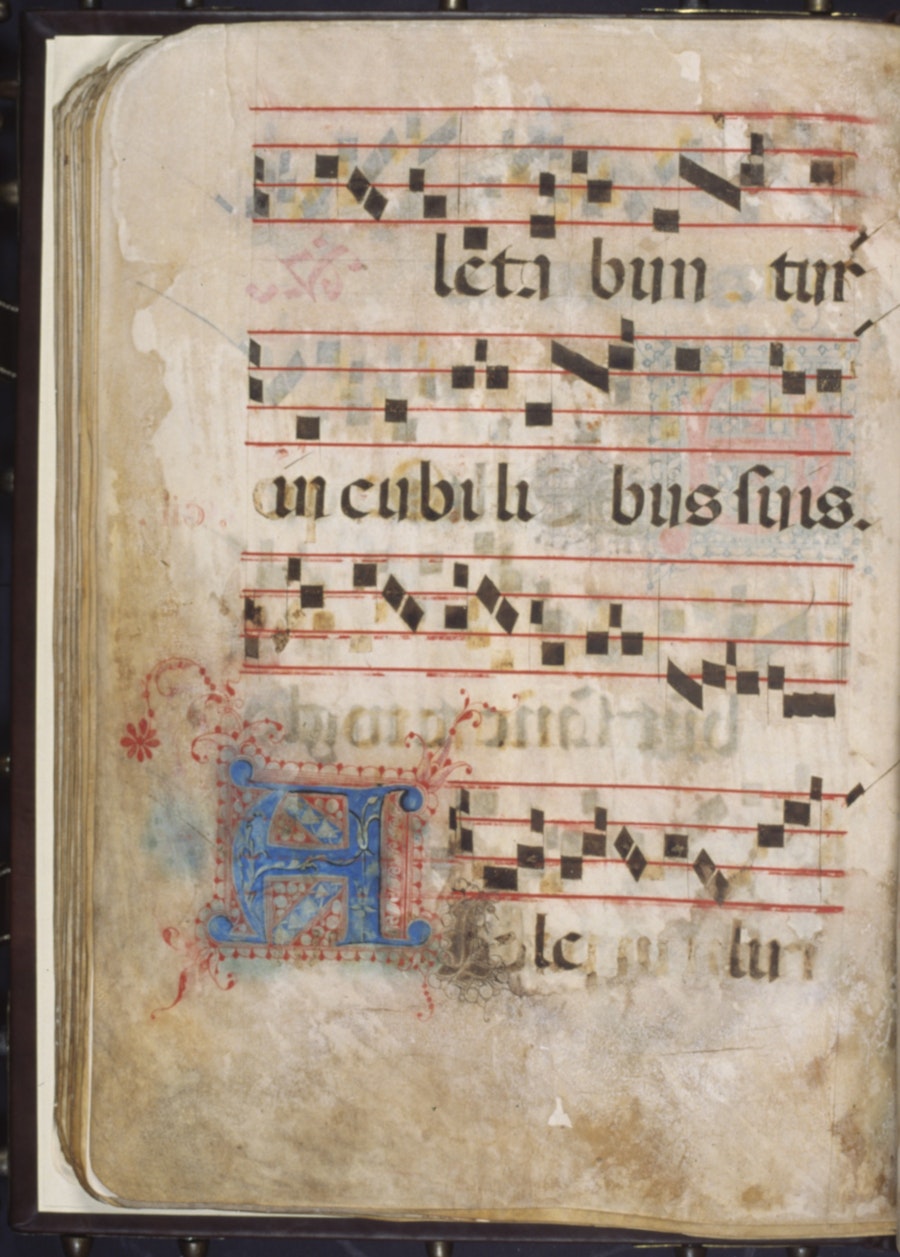 leta bun tur
in cubili bus suis.
A lle lu